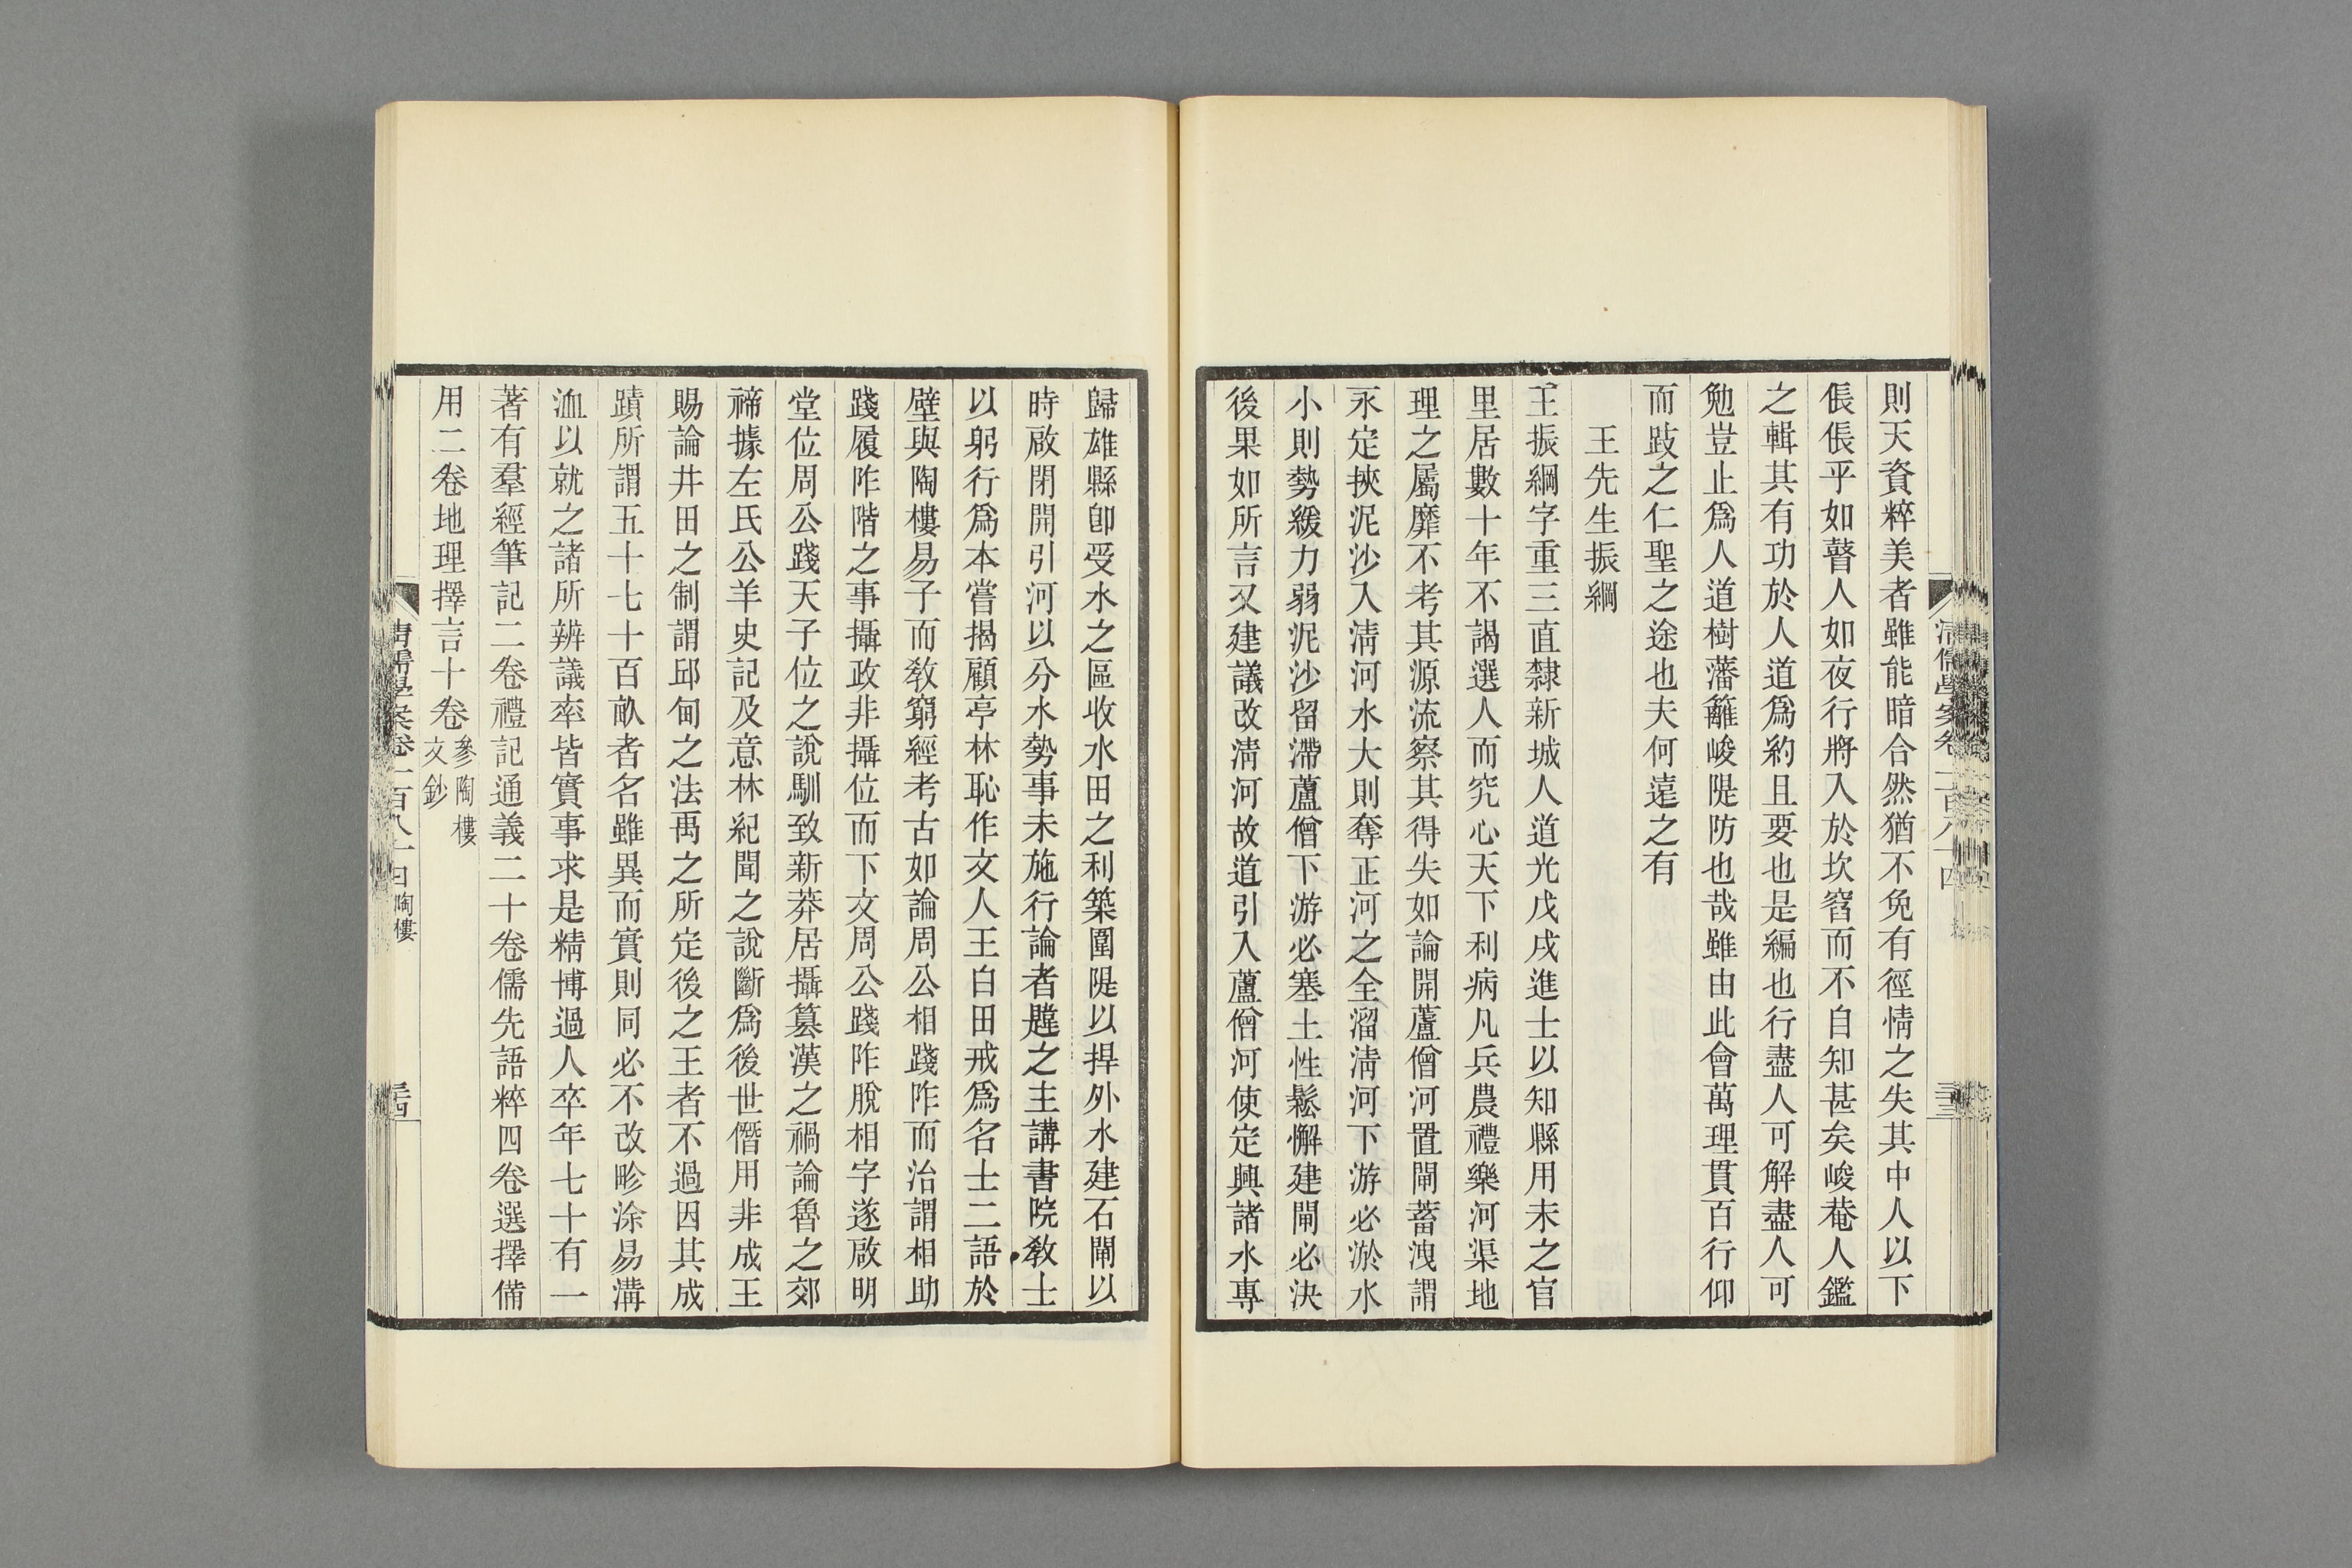 則天資粹美者雖能暗合然猶不免有徑情之失其中人以下
倀倀乎如瞽人如夜行將入於坎窞而不自知甚矣峻菴人鑑
之輯其有功於人道爲約且要也是編也行盡人可解盡人可
勉豈止爲人道樹藩籬峻隄防也哉雖由此會萬理貫百行仰
而跂之仁聖之途也夫何遠之有
王先生振綱
王振綱字重三直隸新城人道光戊戌進士以知縣用未之官
里居數十年不謁選人而究心天下利病凡兵農禮樂河渠地
理之屬靡不考其源流察其得失如論開蘆僧河置閘蓄洩謂
永定挾泥沙入淸河水大則奪正河之全溜淸河下游必淤水
小則勢緩力弱泥沙留滯蘆僧下游必塞土性鬆懈建閘必決
後果如所言又建議改淸河故道引入蘆僧河使定興諸水專
歸雄縣卽受水之區收水田之利築圍隄以捍外水建石閘以
時啟閉開引河以分水勢事未施行論者韙之主講書院敎士
以躬行爲本嘗揭顧亭林恥作文人王白田戒爲名士二語於
壁與陶樓易子而敎窮經考古如論周公相踐阼而治謂相助
踐履阼階之事攝政非攝位而下文周公踐阼脫相字遂啟明
堂位周公踐天子位之說馴致新莽居攝篡漢之禍論魯之郊
禘據左氏公羊史記及意林紀聞之說斷爲後世僭用非成王
賜論井田之制謂邱甸之法禹之所定後之王者不過因其成
蹟所謂五十七十百畝者名雖異而實則同必不改畛涂易溝
洫以就之諸所辨議率皆實事求是精博過人卒年七十有一
著有羣經筆記二卷禮記通義二十卷儒先語粹四卷選擇備
用二卷地理擇言十卷參陶樓文鈔
淸儒學案卷一百八十四
陶樓